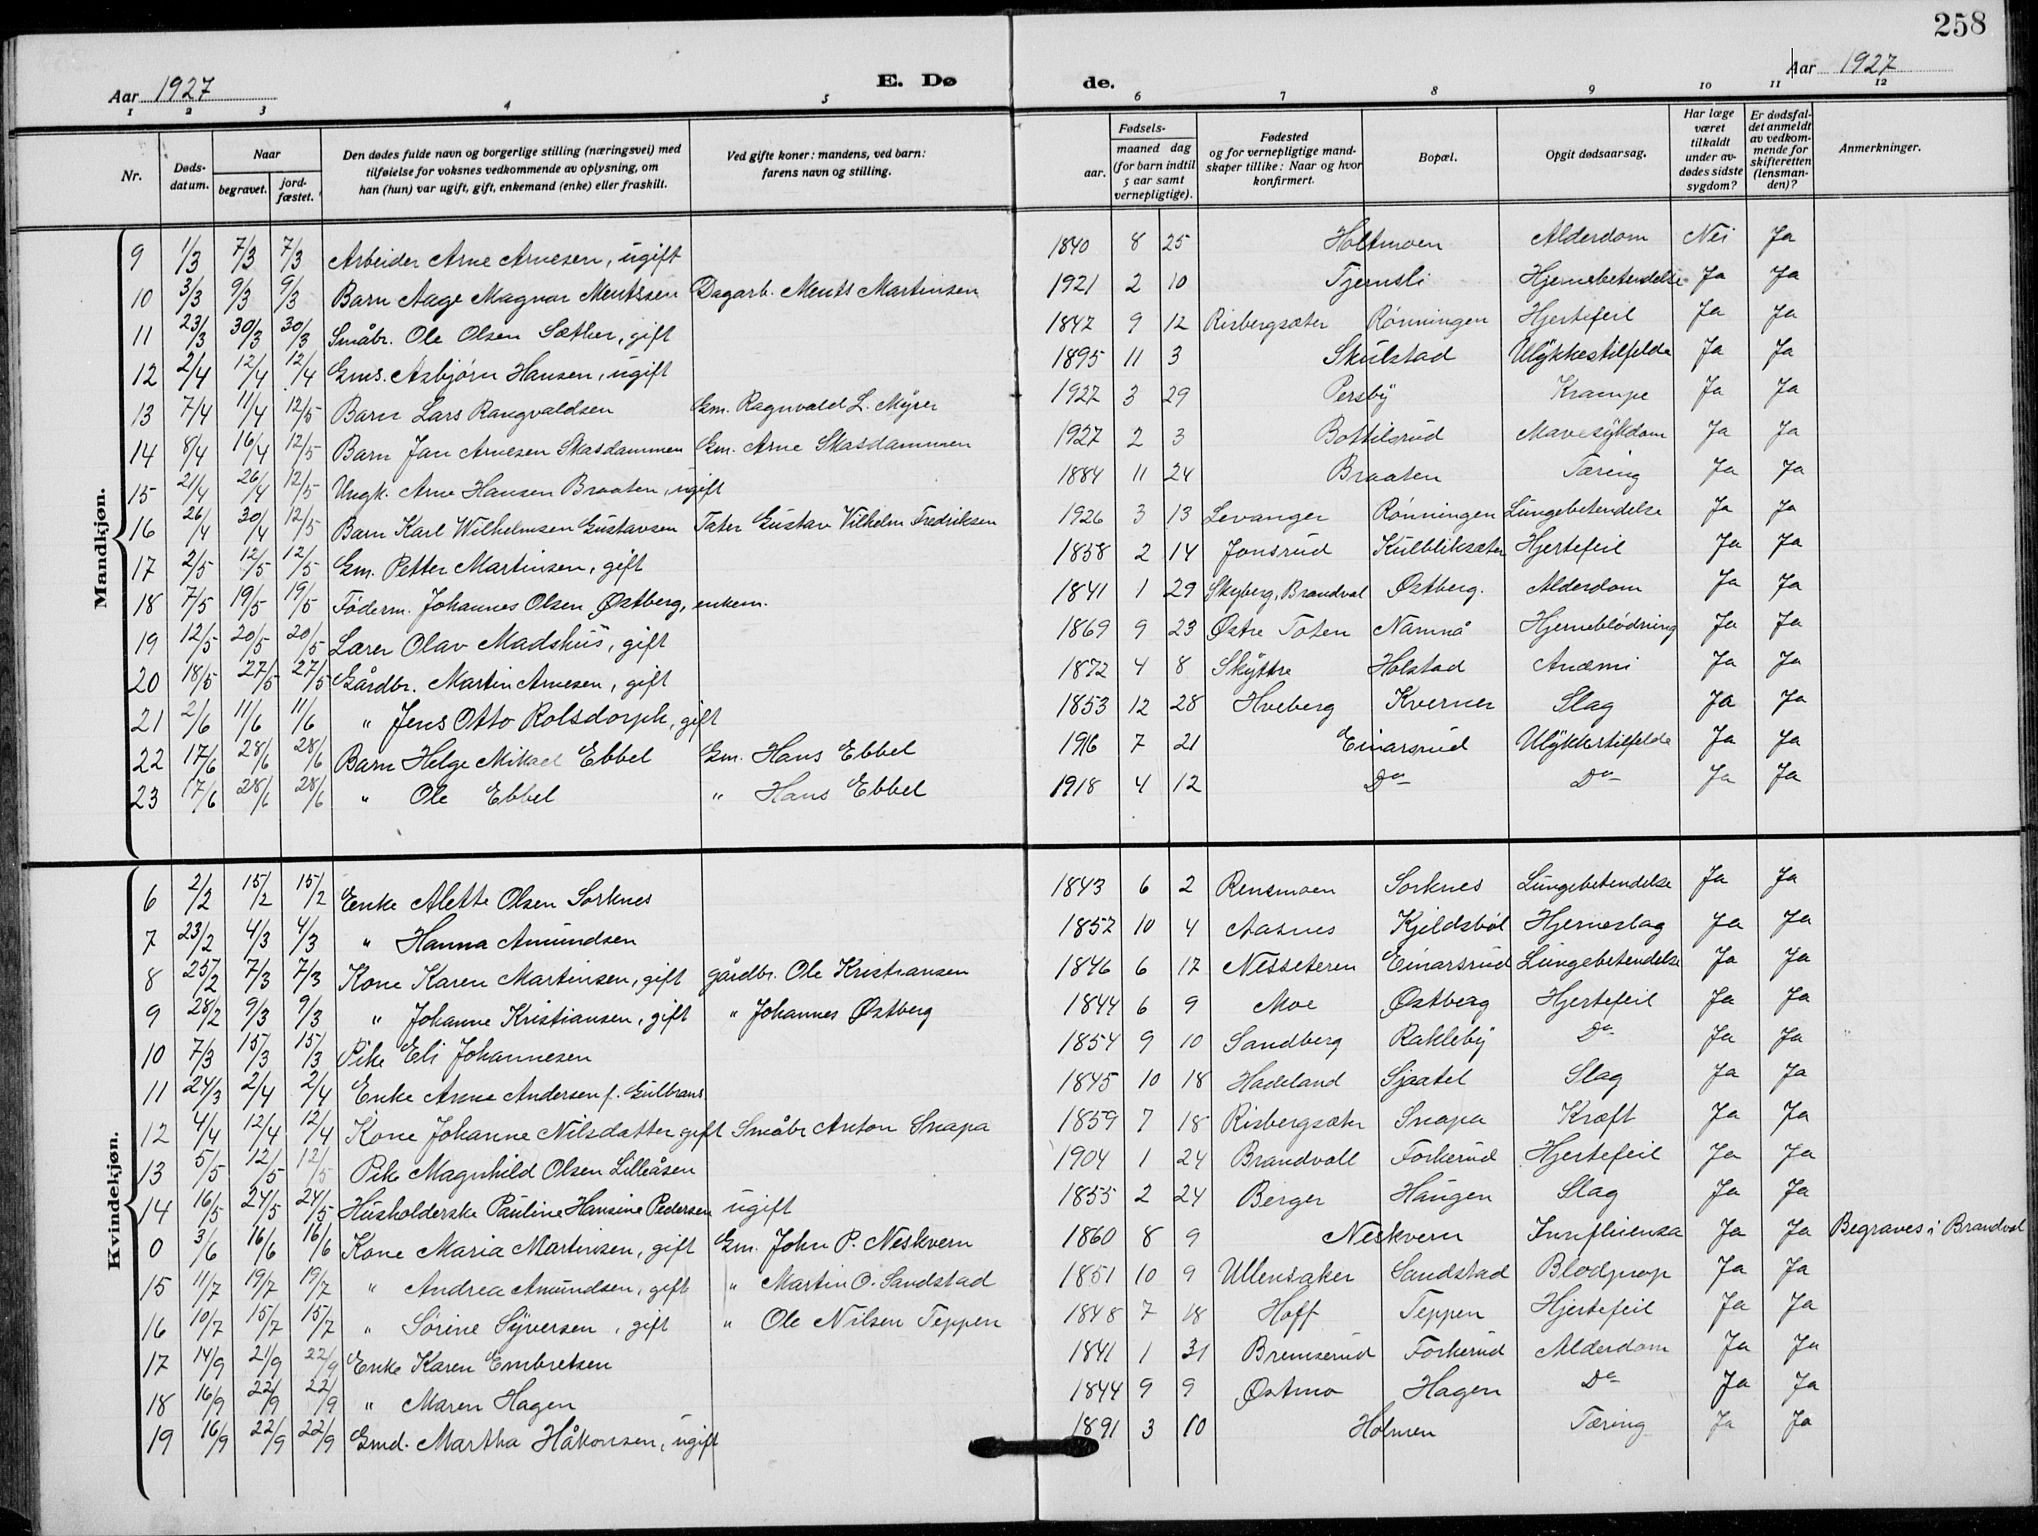 258
Aar 1927 E. Dø de. Aar 1927
1 2 3 4 5 6 7 8 9 10 11 12
Nr. Døds-datum. Naar begravet. jord-fæstet. Den dødes fulde navn og borgerlige stilling (næringsvei) med tilføielse for voksnes vedkommende av oplysning, om han (hun) var ugift, gift, enkemand (enke) eller fraskilt. Ved gifte koner: mandens, ved barn: farens navn og stilling. Fødsels- aar. maaned dag (for barn indtil 5 aar samt vernepligtige). Fødested og for vernepligtige mand-skaper tillike: Naar og hvor konfirmert. Bopæl. Opgit dødsaarsag. Har læge været tilkaldt under av-dødes sidste sygdom? Er dødsfal-det anmeldt av vedkom-mende for skifteretten (lensman-den)? Anmerkninger.
Mandkjøn.
9 1/3 7/3 7/3 Arbeider Arne Arnesen, ugift 1840 8 25 Holtmoen Alderdom Nei Ja
10 3/3 9/3 9/3 Barn Aage Magnar Mentssen Dagarb. Ments Martinsen 1921 2 10 Tjernsli Hjernebetendelse Ja Ja
11 23/3 30/3 30/3 Småbr. Ole Olsen Sæther, gift 1847 9 12 Risbergsæter Rønningen Hjertefeil Ja Ja
12 2/4 12/4 12/4 Gms. Asbjørn Hansen, ugift 1895 11 3 Skulstad Ulykkestilfelde Ja Ja
13 7/4 11/4 12/5 Barn Lars Rangvaldsen Gm. Ragnvald L. Myrer 1927 3 29 Persby Krampe Ja Ja
14 8/4 16/4 12/5 Barn Jan Arnesen Skasdammen Gm. Arne Skasdammen 1927 2 3 Bottilsrud Mavesykdom Ja Ja
15 21/4 26/4 12/5 Ungk. Arne Hansen Braaten, ugift 1884 11 24 Braaten Tæring Ja Ja
16 26/4 30/4 12/5 Barn Karl Wilhelmsen Gustavsen Tater Gustav Vilhelm Fredriksen 1926 3 13 Levanger Rønningen Lungebetendelse Ja Ja
17 2/5 12/5 12/5 Gm. Petter Martinsen, gift 1858 2 14 Jonsrud Kulbliksæter Hjertefeil Ja Ja
18 7/5 19/5 19/5 Føderm. Johannes Olsen Østberg, enkem. 1841 1 29 Skyberg, Brandval Østberg. Alderdom Ja Ja
19 12/5 20/5 20/5 Lærer Olav Madshus, gift 1869 9 23 Østre Toten Namnå Hjerneblødning Ja Ja
20 18/5 27/5 27/5 Gårdbr. Martin Arnesen, gift 1872 4 8 Skyttre Holstad Anæmi Ja Ja
21 2/6 11/6 11/6 " Jens Otto Rolsdorph, gift 1853 12 28 Hveberg Kverner Slag Ja Ja
22 17/6 28/6 28/6 Barn Helge Mikael Ebbel Gm. Hans Ebbel 1916 7 21 Einarsrud Ulykkestilfelde Ja Ja
23 17/6 28/6 28/6 " Ole Ebbel " Hans Ebbel 1918 4 12 Do Do Ja Ja
Kvindekjøn.
6 2/2 15/2 15/2 Enke Alette Olsen Sorknes 1843 6 2 Rensmoen Sorknes Lungebetendelse Ja Ja
7 23/2 4/3 4/3 " Hanna Amundsen 1852 10 4 Aasnes Kjeldsbøl Hjerneslag Ja Ja
8 25/2 7/3 7/3 Kone Karen Martinsen, gift gårdbr. Ole Kristiansen 1846 6 17 Nesseteren Einarsrud Lungebetendelse Ja Ja
9 28/2 9/3 9/3 " Johanne Kristiansen, gift " Johannes Østberg 1844 6 9 Moe Østberg Hjertefeil Ja Ja
10 7/3 15/3 15/3 Pike Eli Johannesen 1854 9 10 Sandberg Rakleby Do Ja Ja
11 24/3 2/4 2/4 Enke Anne Andersen f. Gulbrans 1845 10 18 Hadeland Sjaatel Slag Ja Ja
12 4/4 12/4 12/4 Kone Johanne Nilsdatter gift Småbr Anton Snapa 1859 7 18 Risbergsæter Snapa Kræft Ja Ja
13 5/5 12/5 12/5 Pike Magnhild Olsen Lilleåsen 1904 1 24 Brandvall Forkerud Hjertefeil Ja Ja
14 16/5 24/5 24/5 Husholderske Pauline Hansine Pedersen ugift 1855 2 24 Berger Haugen Slag Ja Ja
0 3/6 16/6 16/6 Kone Maria Martinsen, gift Gm. John P. Neskvern 1860 8 9 Neskvern Innfluensa Ja Ja Begraves i Brandval
15 11/7 19/7 19/7 " Andrea Amundsen, gift " Martin O. Sandstad 1851 10 9 Ullensaker Sandstad Blodprop Ja Ja
16 10/7 15/7 15/7 " Sørine Syversen, gift " Ole Nilsen Teppen 1848 7 18 Hoff Teppen Hjertefeil Ja Ja
17 14/9 21/9 22/9 Enke Karen Embretsen 1841 1 31 Bremserud Forkerud Alderdom Ja Ja
18 16/9 22/9 22/9 " Maren Hagen 1844 9 9 Østmo Hagen Do Ja Ja
19 16/9 22/9 22/9 Gmd. Martha Håkonsen, ugift 1891 3 10 Holmen Tæring Ja Ja